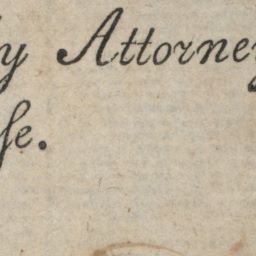 y Attorney
ſe.